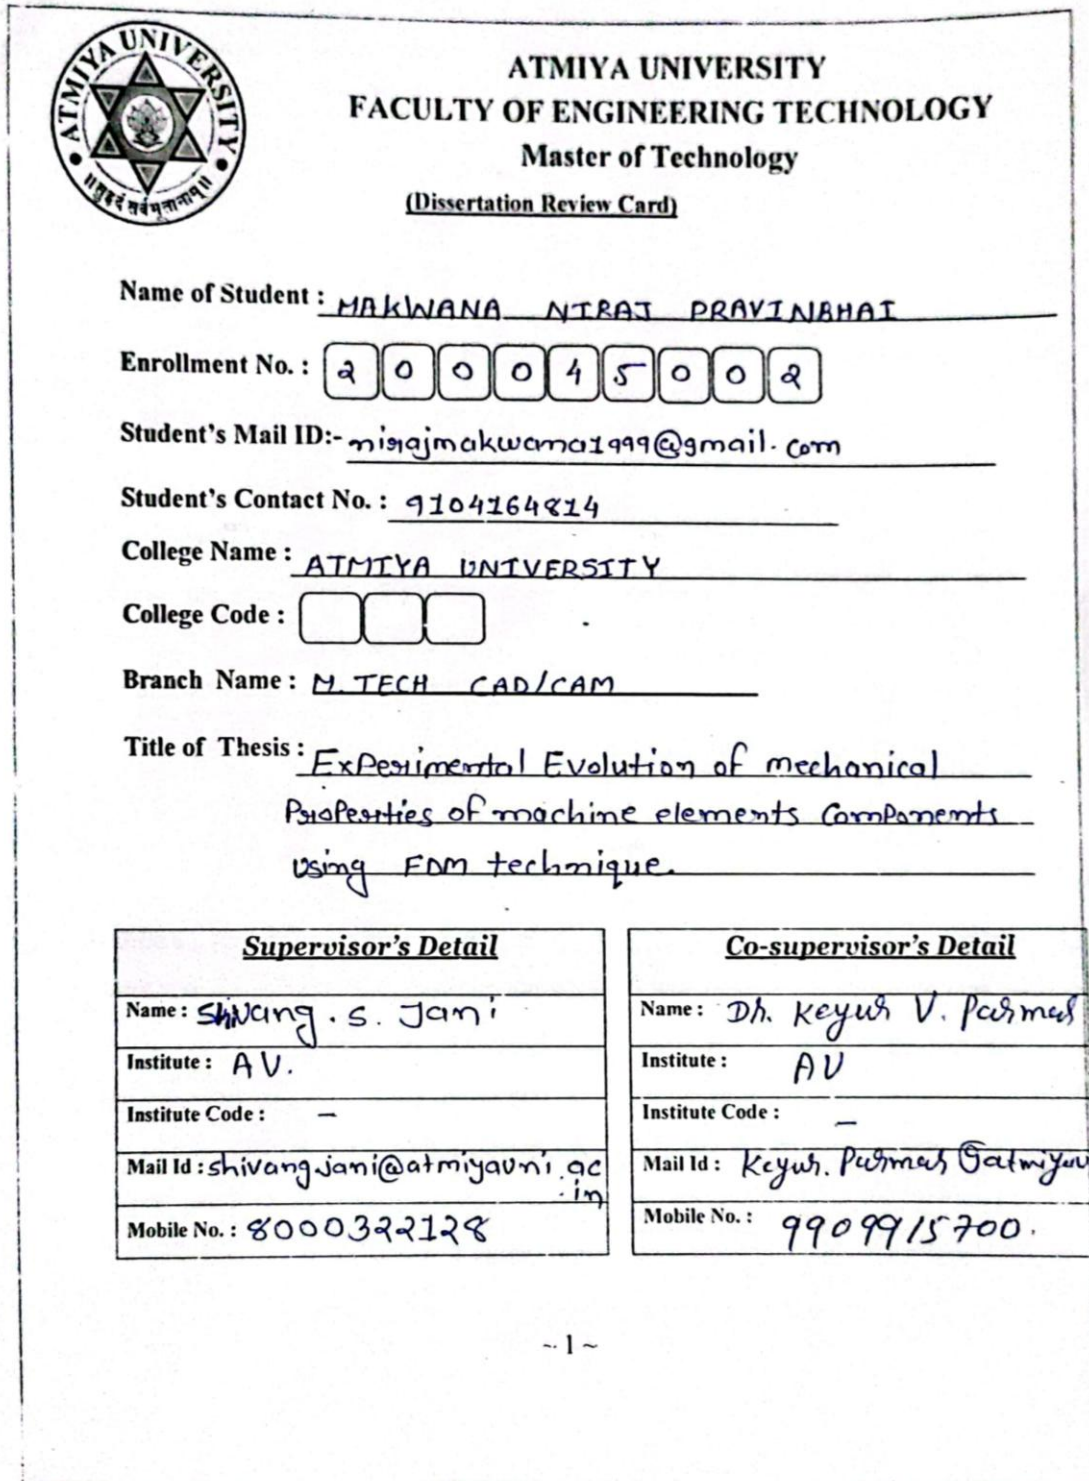 ATMIYA UNIVERSITY
॥ सुहृदं सर्वभूतानाम् ॥
ATMIYA UNIVERSITY
FACULTY OF ENGINEERING TECHNOLOGY
Master of Technology
(Dissertation Review Card)
Name of Student : MAKWANA NIRAJ PRAVINBHAI
Enrollment No. : 200045002
Student's Mail ID:- nirajmakwana1999@gmail.com
Student's Contact No. : 9104164814
College Name : ATMIYA UNIVERSITY
College Code :
Branch Name : M.TECH CAD/CAM
Title of Thesis : Experimental Evolution of mechanical
Properties of machine elements Components
Using FDM technique.
Supervisor's Detail
Name : Shivang . S. Jani
Institute : AU.
Institute Code : –
Mail Id : shivang.jani@atmiyauni.ac
.in
Mobile No. : 8000322128
Co-supervisor's Detail
Name : Dr. Keyur V. Parmar
Institute : AU
Institute Code : –
Mail Id : Keyur. Parmar @atmiyau
Mobile No. : 9909915700.
~ 1 ~